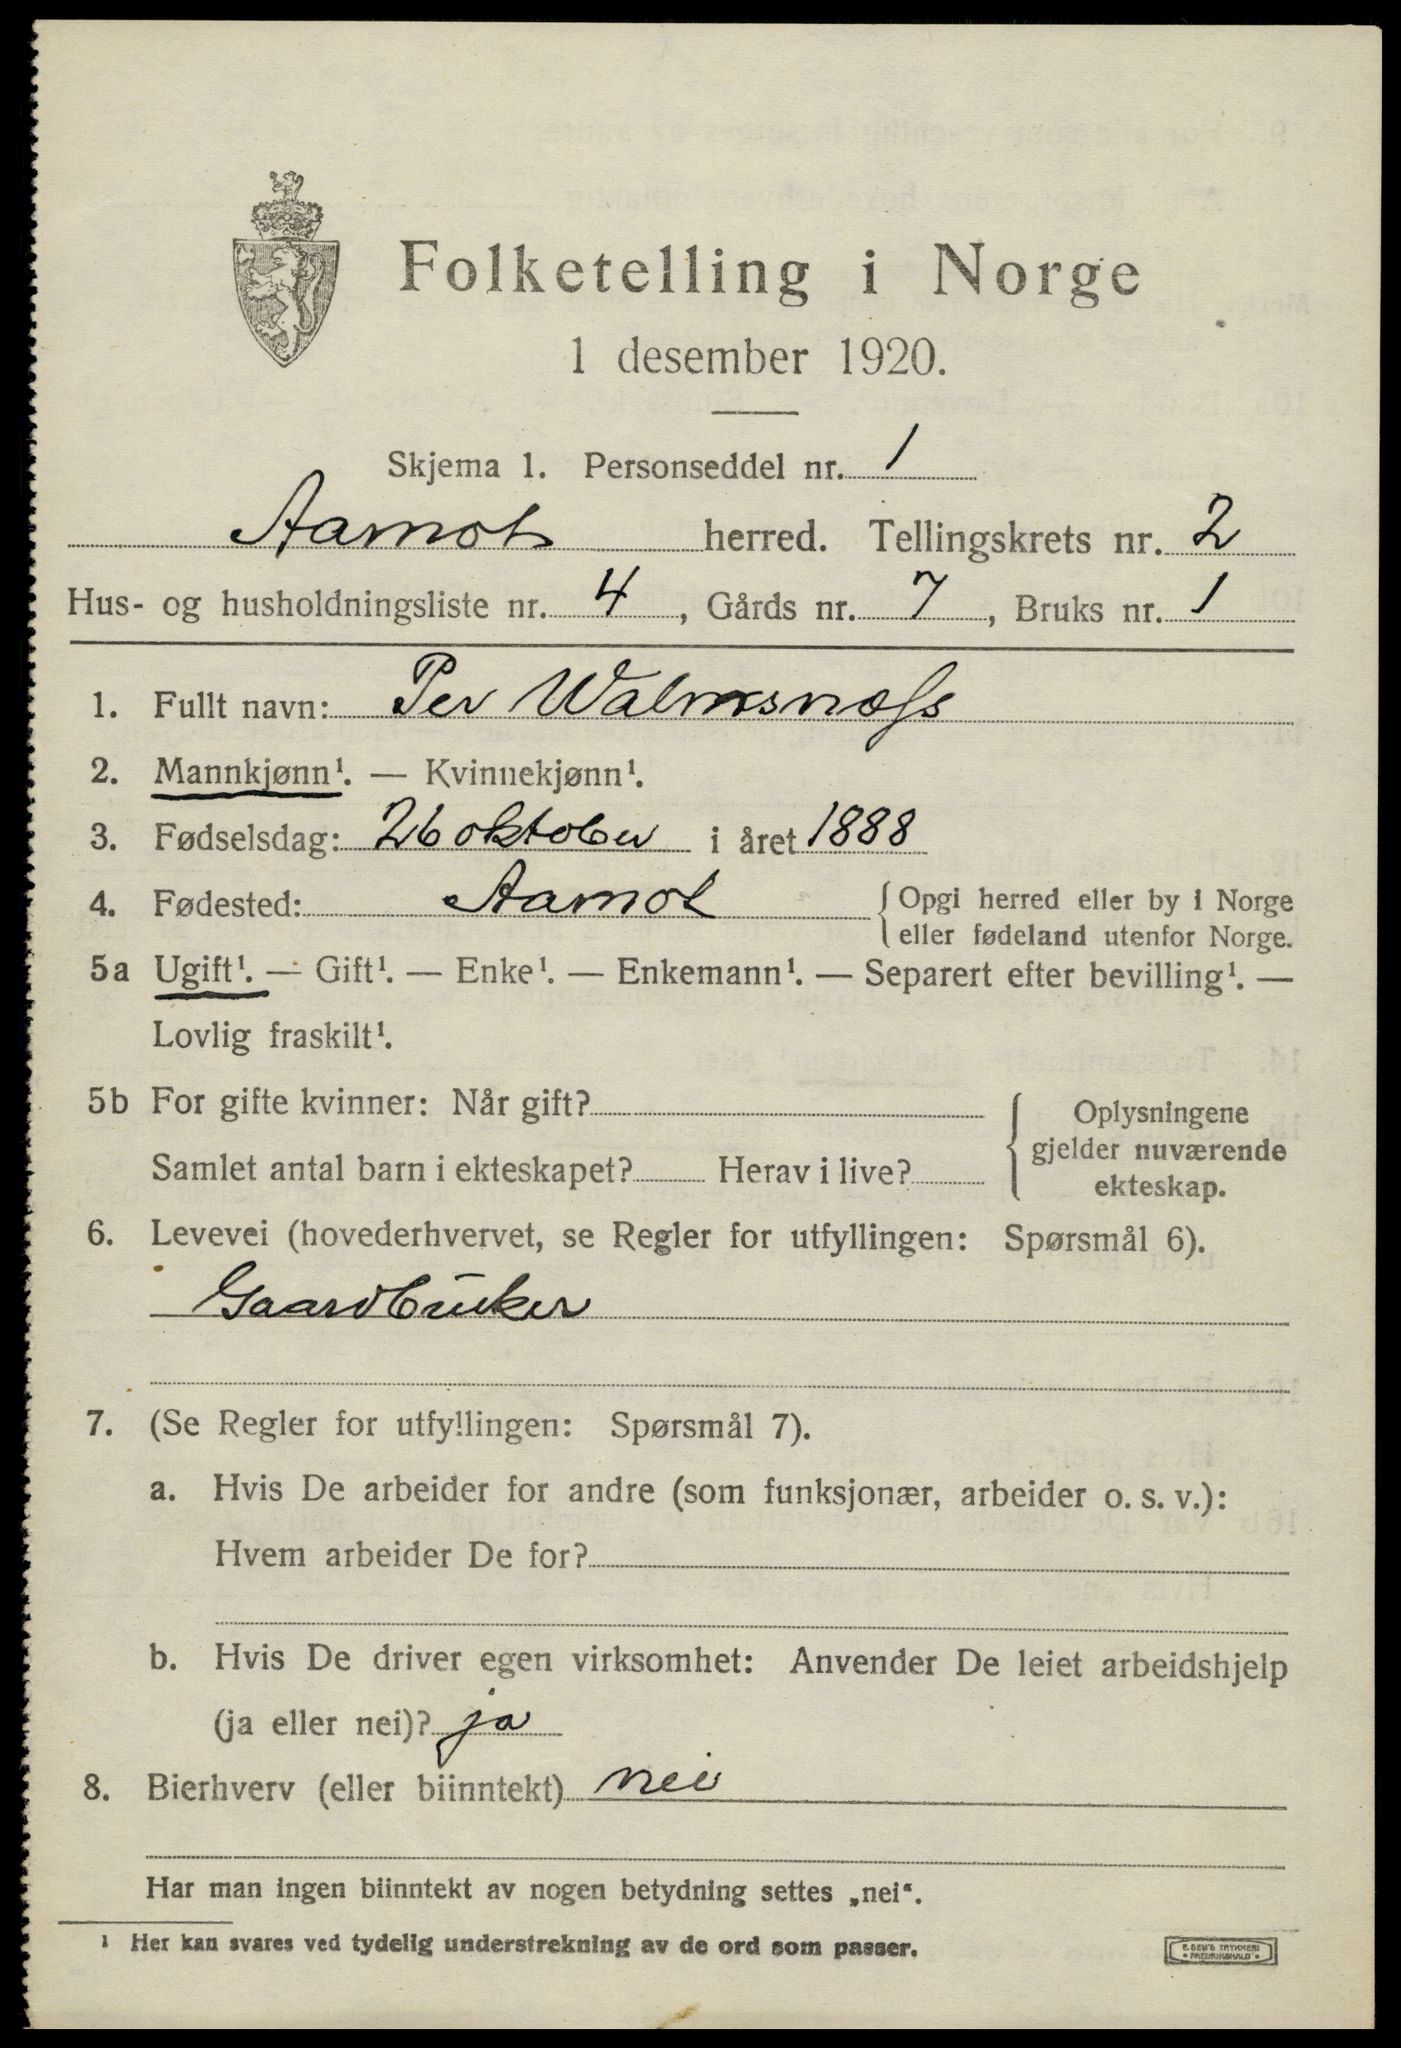 Folketelling i Norge
1 desember 1920.
Skjema 1. Personseddel nr. 1
Aamot herred. Tellingskrets nr. 2
Hus- og husholdningsliste nr. 4, Gårds nr. 7, Bruks nr. 1
1. Fullt navn: Per Walmsnæss
2. Mannkjønn¹. — Kvinnekjønn¹.
3. Fødselsdag: 26 oktober i året 1888
4. Fødested: Aamot { Opgi herred eller by i Norge
eller fødeland utenfor Norge.
5a Ugift¹. — Gift¹. — Enke¹. — Enkemann¹. — Separert efter bevilling¹. —
Lovlig fraskilt¹.
5b For gifte kvinner: Når gift?
Samlet antal barn i ekteskapet? Herav i live?
Oplysningene
gjelder nuværende
ekteskap.
6. Levevei (hovederhvervet, se Regler for utfyllingen: Spørsmål 6).
Gaardbruker
7. (Se Regler for utfyllingen: Spørsmål 7).
a. Hvis De arbeider for andre (som funksjonær, arbeider o. s. v.):
Hvem arbeider De for?
b. Hvis De driver egen virksomhet: Anvender De leiet arbeidshjelp
(ja eller nei)? ja
8. Bierhverv (eller biinntekt) nei
Har man ingen biinntekt av nogen betydning settes „nei“.
¹ Her kan svares ved tydelig understrekning av de ord som passer.
E. SEM'S TRYKKERI
FREDRIKSHALD